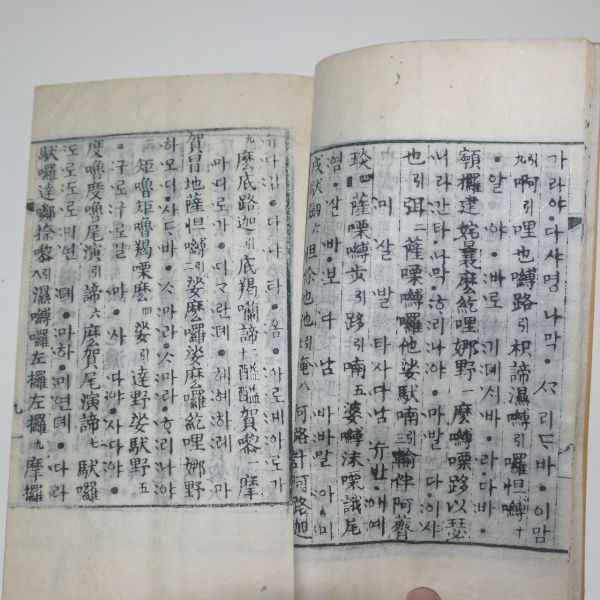 가라야・다사명 나막・ 리ᄃᆞ바・이맘
引啊引哩也嚩路引枳諦濕嚩引羅怛嚩十
・알야・바로기뎨시바・라다바・
顊攞建姹曩麽紇哩娜野一麽嚩㗚路以瑟
니라간타・나막ᄒᆞ리나야・마발다・이사
也引弭二薩㗚嚩羅他娑馱喃三輸伴阿
미살발타사다남 슈반애예
琰 薩㗚嚩步引路引喃五婆嚩沫㗚誐尾
염・살바・보다남 바바말아미
戍馱 六怛你也他引唵八阿路計阿路迦
슈다감・다냐타・옴・아로계아로가
九麽底路迦引底羯囒諦十醯醯賀黎一摩
마디로가・디가란뎨・혜혜하례 마
賀冒地薩怛嚩二娑麽囉娑麽囉紇哩娜野
하모디・사ᄃᆞ바・ᄉᆞ마라・ᄉᆞ마라・ᄒᆞ리나야
三矩嚕矩嚕羯㗚麽四娑引達野娑馱野五
・구로・구로갈마・사다야・사다야・
度嚕度嚕尾演引諦六麽賀尾演諦七馱羅
도로도로미연뎨・마하・미연뎨・다라
馱囉達 捺黎八濕嚩囉左攞左攞九摩攞